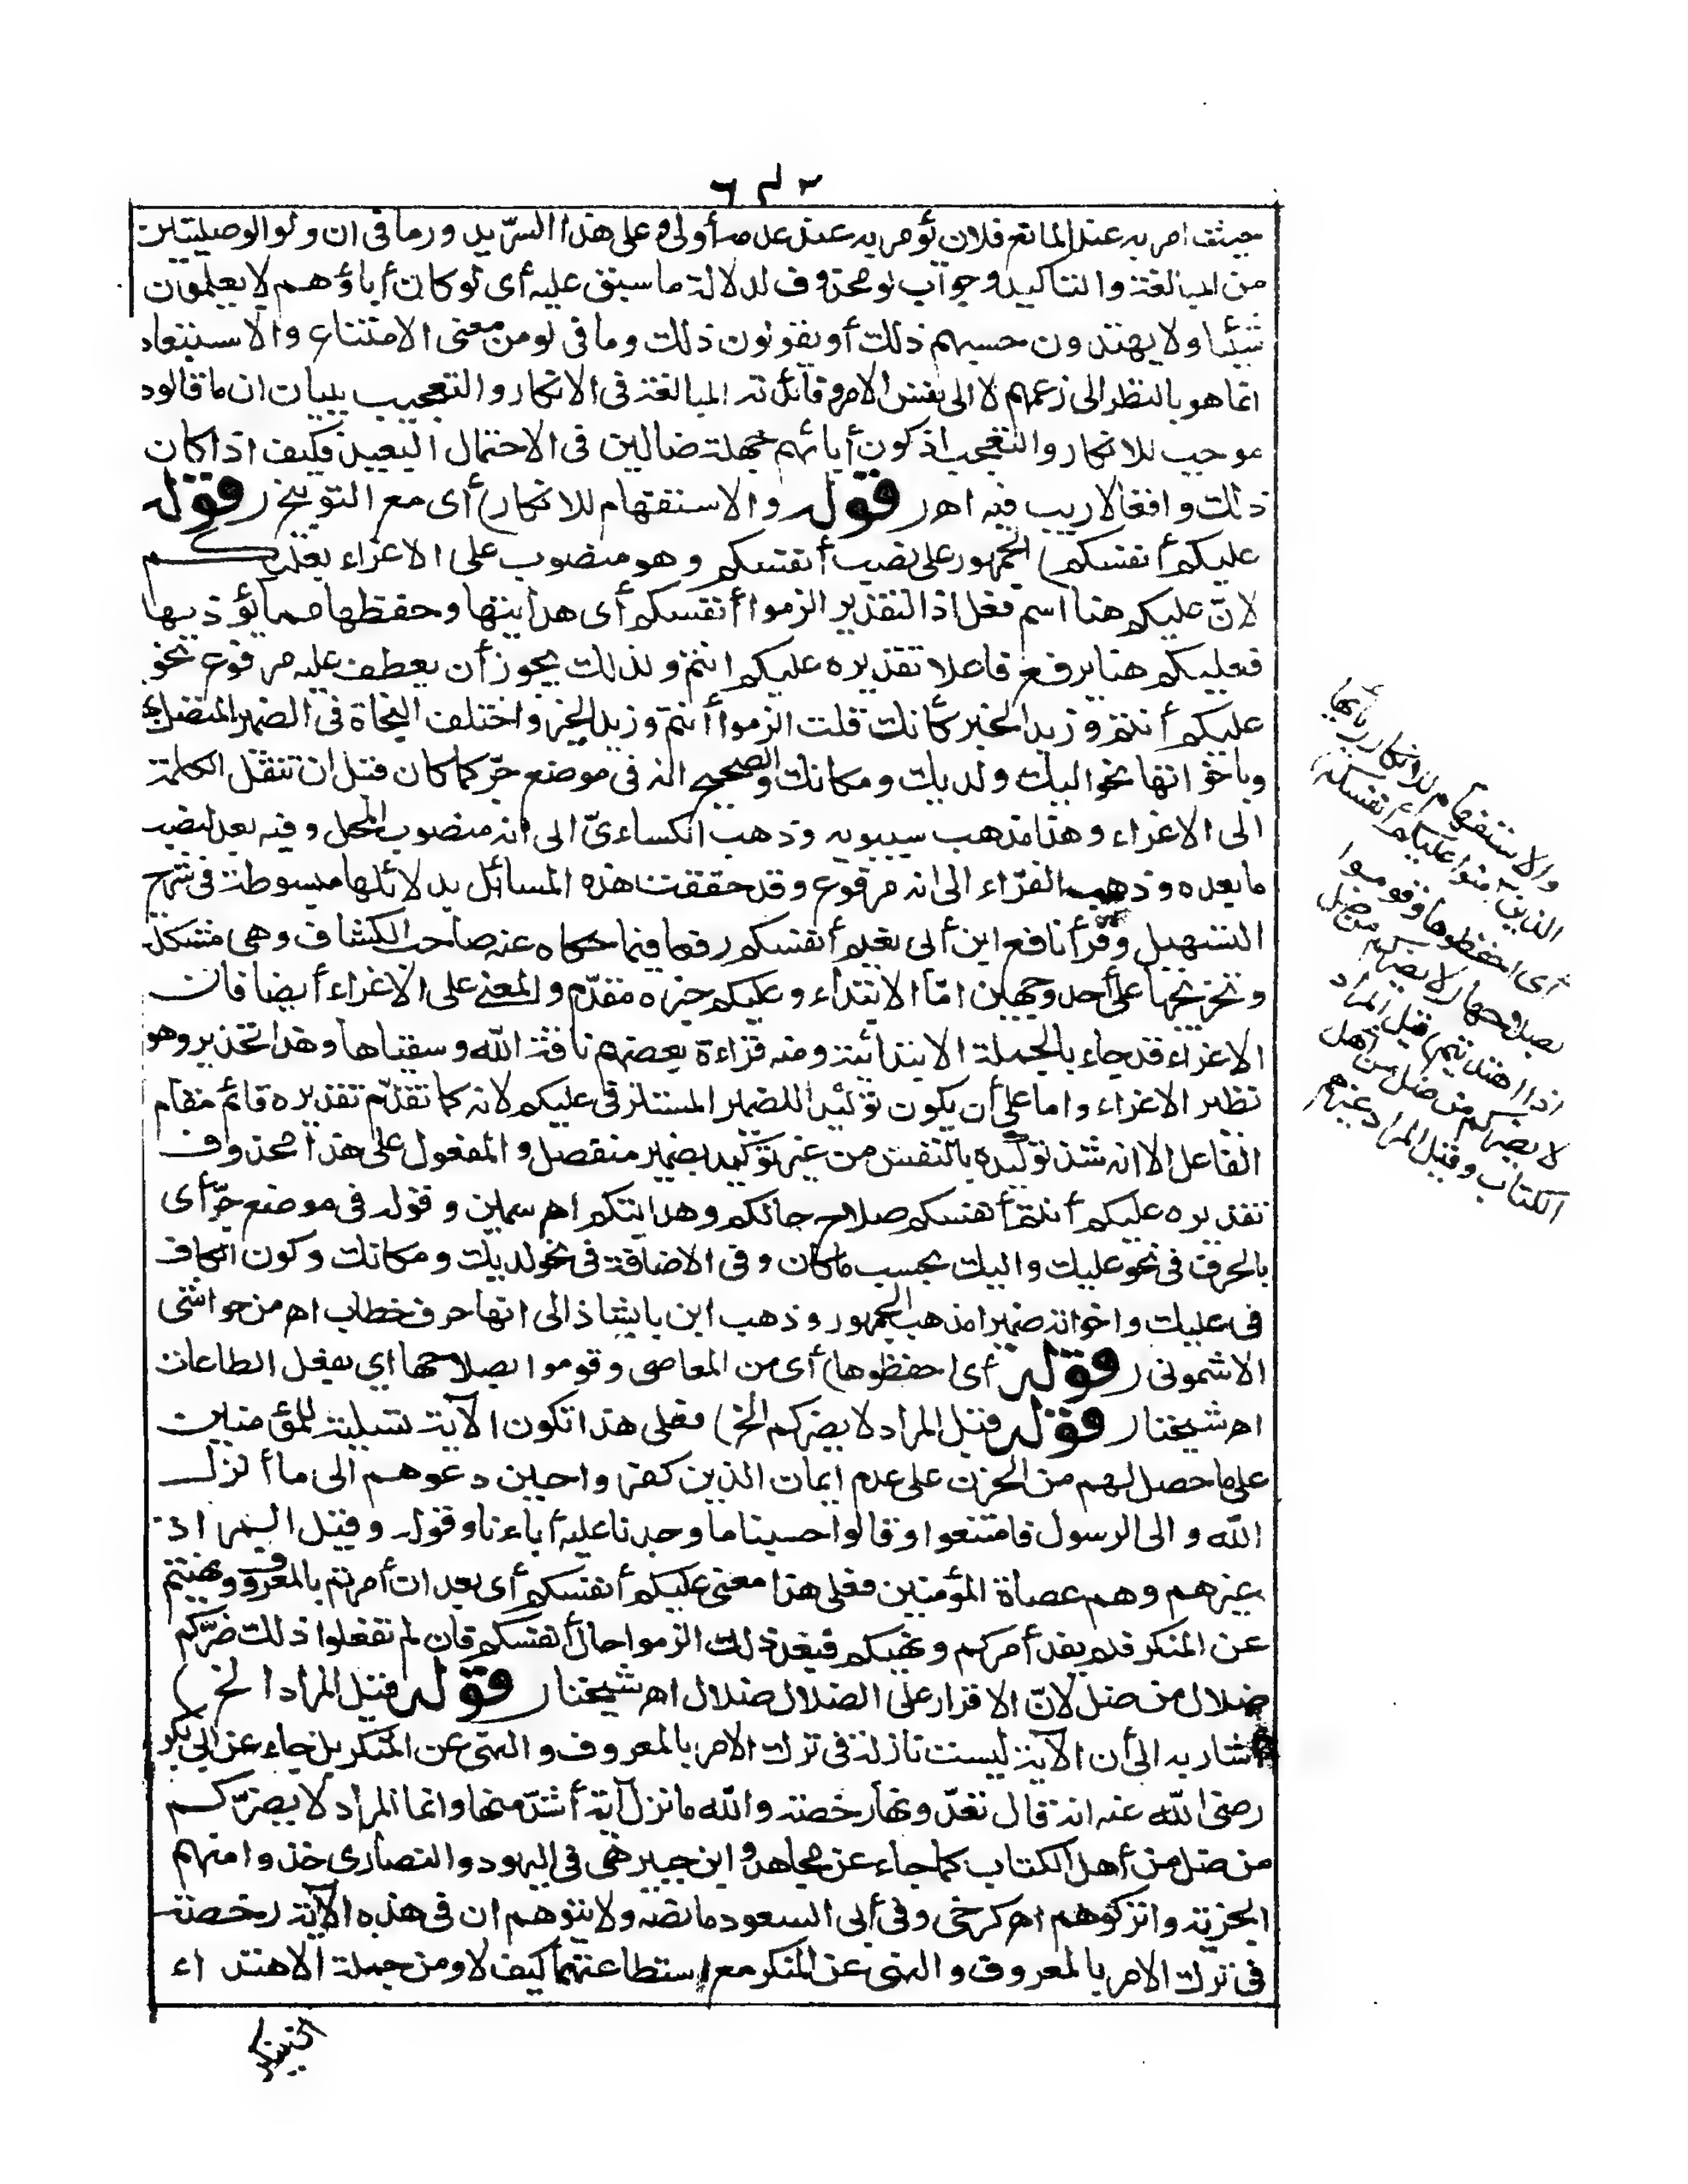 حيث امر به عند المانع فلان يؤمر به عند عدمه أولى وعلى هذا السر يدور ما فى ان ولو الوصليتين
من المبالغة والتأكيد وجواب لو محذوف لدلالة ما سبق عليه أى لو كان أباؤهم لا يعلمون
شيئا ولا يهتدون حسبهم ذلك أو يقولون ذلك وما فى لو من معنى الامتناع والاستبعاد
انما هو بالنظر الى زعمهم لا الى نفس الامر وفائدته المبالغة فى الانكار والتعجيب ببيان ان ما قالوه
موجب للانكار والتعجب اذ كون أبائهم جهلة ضالين فى الاحتمال البعيد فكيف اذا كان
ذلك واقعا لا ريب فيه اهر (قوله والاستفهام للانكار) أى مع التوبيخ (قوله
عليكم أنفسكم) الجمهور على نصب أنفسكم وهو منصوب على الاغراء بعليكم
لانّ عليكم هنا اسم فعل اذ التقدير الزموا أنفسكم أى هدايتها وحفظها مما يؤذيها
فعليكم هنا يرفع فاعلا تقديره عليكم انتم ولذلك يجوز أن يعطف عليه مرفوع نحو
عليكم أنتم وزيد الخير كأنك قلت الزموا أنتم وزيد الخير واختلف النحاة فى الضمير المتصل بها
وباخواتها نحو اليك ولديك ومكانك والصحيح انه فى موضع جرّ كما كان قبل ان تنقل الكلمة
الى الاغراء وهذا مذهب سيبويه وذهب الكساءىّ الى انه منصوب المحل وفيه بعد لنصب
ما بعده وذهب الفرّاء الى انه مرفوع وقد حققت هذه المسائل بدلائلها مبسوطة فى شرح
التسهيل وقرأ نافع ابن أبى نعيم أنفسكم رفعا فيما حكاه عنه صاحب الكشاف وهى مشكلة
وتخريجها على أحد وجهين امّا الابتداء وعليكم خبره مقدّم والمعنى على الاغراء أيضا فان
الاغراء قد جاء بالجملة الابتدائية ومنه قراءة بعضهم ناقة الله وسقياها وهذا تحذير وهو
نظير الاغراء واما على أن يكون توكيدا للضمير المستتر فى عليكم لانه كما تقدّم تقديره قائم مقام
الفاعل الا انه شذ توكيده بالنفس من غير توكيد بضمير منفصل والمفعول على هذا محذوف
تقديره عليكم أنتم أنفسكم صلاح حالكم وهدايتكم اهر سمين وقوله فى موضع جرّ أى
بالحرف فى نحو عليك واليك بحسب ما كان وفى الاضافة فى نحو لديك ومكانك وكون الكاف
فى عليك واخواته ضميرا مذهب الجمهور وذهب ابن بابشاذ الى انها حرف خطاب اهر من حواشى
الاشمونى (قوله أى احفظوها) أى من المعاصى وقوموا بصلاحها اي بفعل الطاعات
اهر شيخنا (قوله قيل المراد لا يضركم الخ) فعلى هذا تكون الآية تسلية للمؤمنين
على ما حصل لهم من الحزن على عدم ايمان الذين كفروا حين دعوهم الى ما أنزل
الله والى الرسول فامتنعوا وقالوا حسبنا ما وجدنا عليه أباءنا وقوله وقيل المراد
غيرهم وهم عصاة المؤمنين فعلى هذا معنى عليكم أنفسكم أى بعد ان أمرتم بالمعروف ونهيتم
عن المنكر فلم يفد أمركم ونهيكم فبعد ذلك الزموا حال أنفسكم فان لم تفعلوا ذلك ضرّكم
ضلال من ضل لانّ الاقرار على الضلال ضلال اهر شيخنا (قوله قيل المراد الخ)
أشار به الى أن الآية ليست نازلة فى ترك الامر بالمعروف والنهى عن المنكر بل جاء عن أبى بكر
رضى الله عنه انه قال تعدّونها رخصة والله ما نزل آية أشدّ منها وانما المراد لا يضرّكم
من ضل من أهل الكتاب كما جاء عن مجاهد وابن جبير هى فى اليهود والنصارى خذوا منهم
الجزية واتركوهم اهر كرخى وفى أبى السعود ما نصه ولا يتوهم ان فى هذه الآية رخصة
فى ترك الامر بالمعروف والنهى عن المنكر مع استطاعتهما كيف لا ومن جملة الاهتداء
والاستفهام للانكار (يا أيها
الذين آمنوا عليكم أنفسكم)
أى احفظوها وقوموا
بصلاحها (لا يضركم من ضل
اذا اهتديتم) قيل المراد
لا يضركم من ضل من أهل
الكتاب وقيل المراد غيرهم